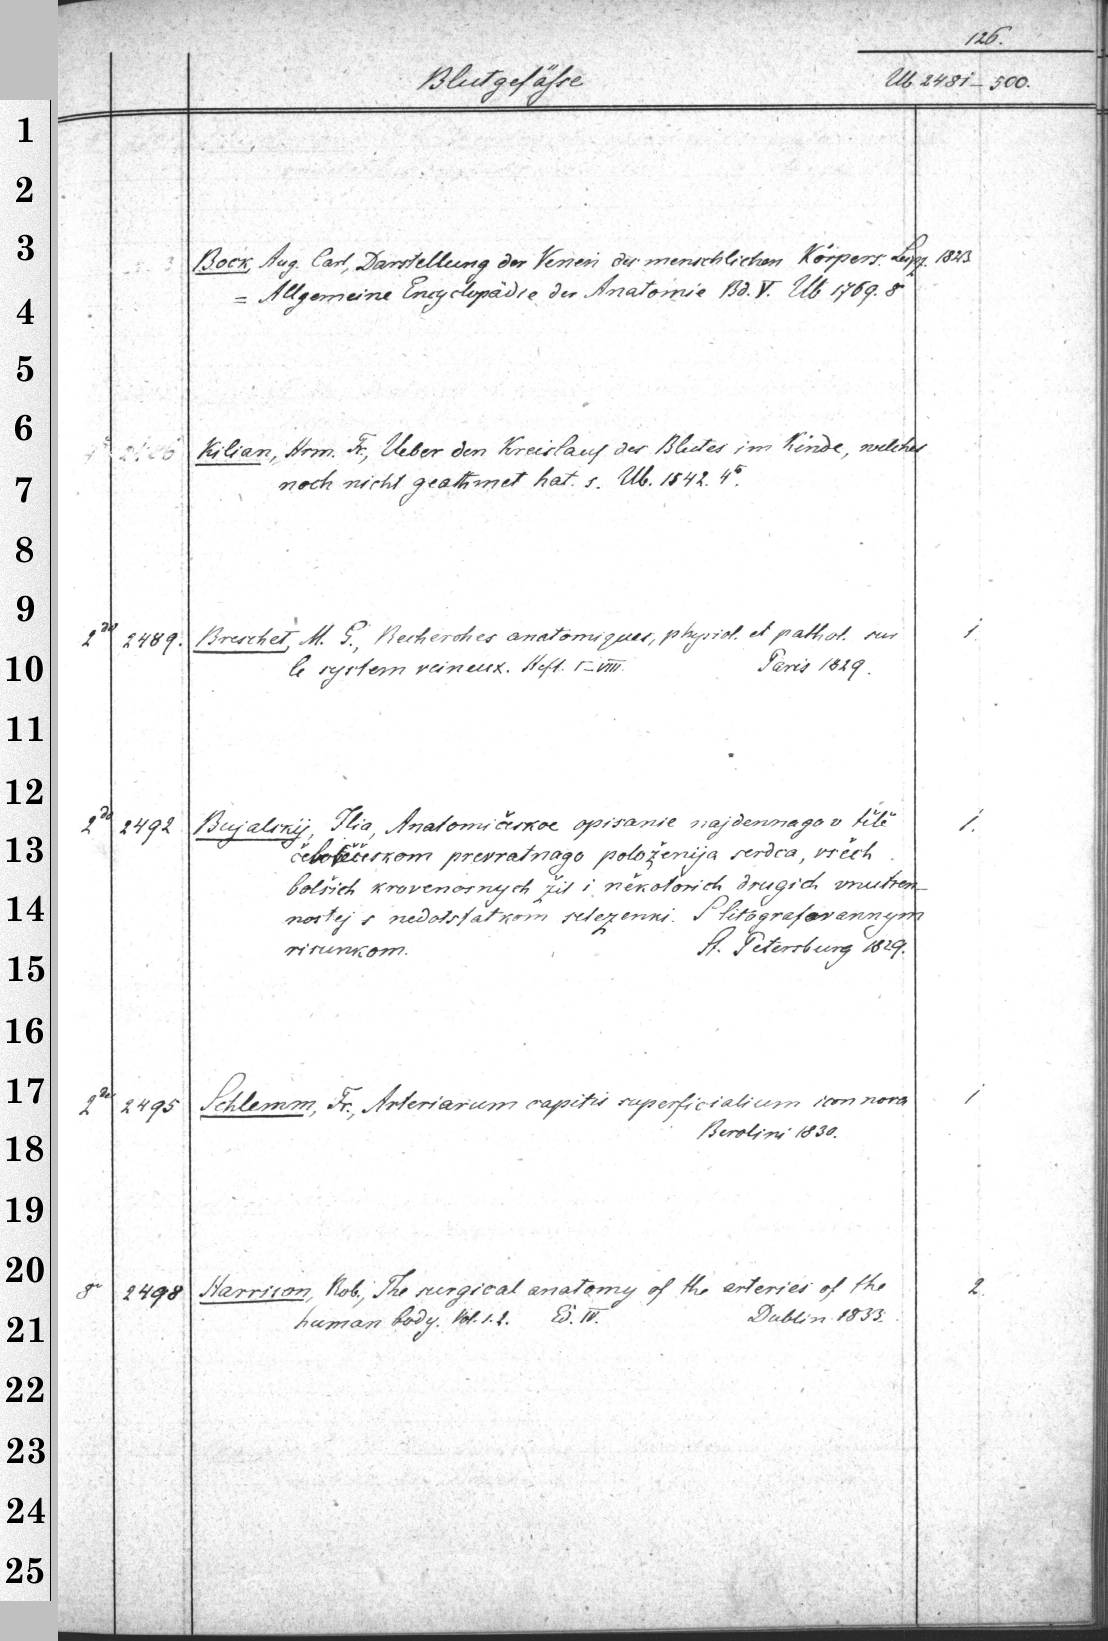 126.
Blutgefäße
Ub 2481–500.
Bock, Aug. Carl, Darstellung der Venen des menschlichen Körpers. Leipz. 1823
= Allgemeine Encyclopädie der Anatomie Bd. V. Ub 1769. 8°
Kilian, Hrm. Fr., Ueber den Kreislauf des Blutes im Kinde, welches
noch nicht geathmet hat. s. Ub. 1542. 4°.
2° 2489. Breschet, M. G., Recherches anatomiques, physiol. et pathol. sur 1
le system veineux. Heft. I–VIII. Paris 1829.
2° 2492 Bujalskij, Ilia, Anatomičeskoe opisanie najdennago v tělě 1.
čelověčeskom prevratnago položenija serdca, vsěch
bolšich krovenosnych žil i někotorich drugich vnutren-
nostej s nedostatkom selezenki. S litografovannym
risunkom. St. Petersburg 1829.
2° 2495 Schlemm, Fr., Arteriarum capitis superficialium icon nova 1
Berolini 1830.
8° 2498 Harrison, Rob., The surgical anatomy of the arteries of the 2.
human body. Vol. 1. 2. Ed. IV. Dublin 1833.
1
2
3
4
5
6
7
8
9
10
11
12
13
14
15
16
17
18
19
20
21
22
23
24
25